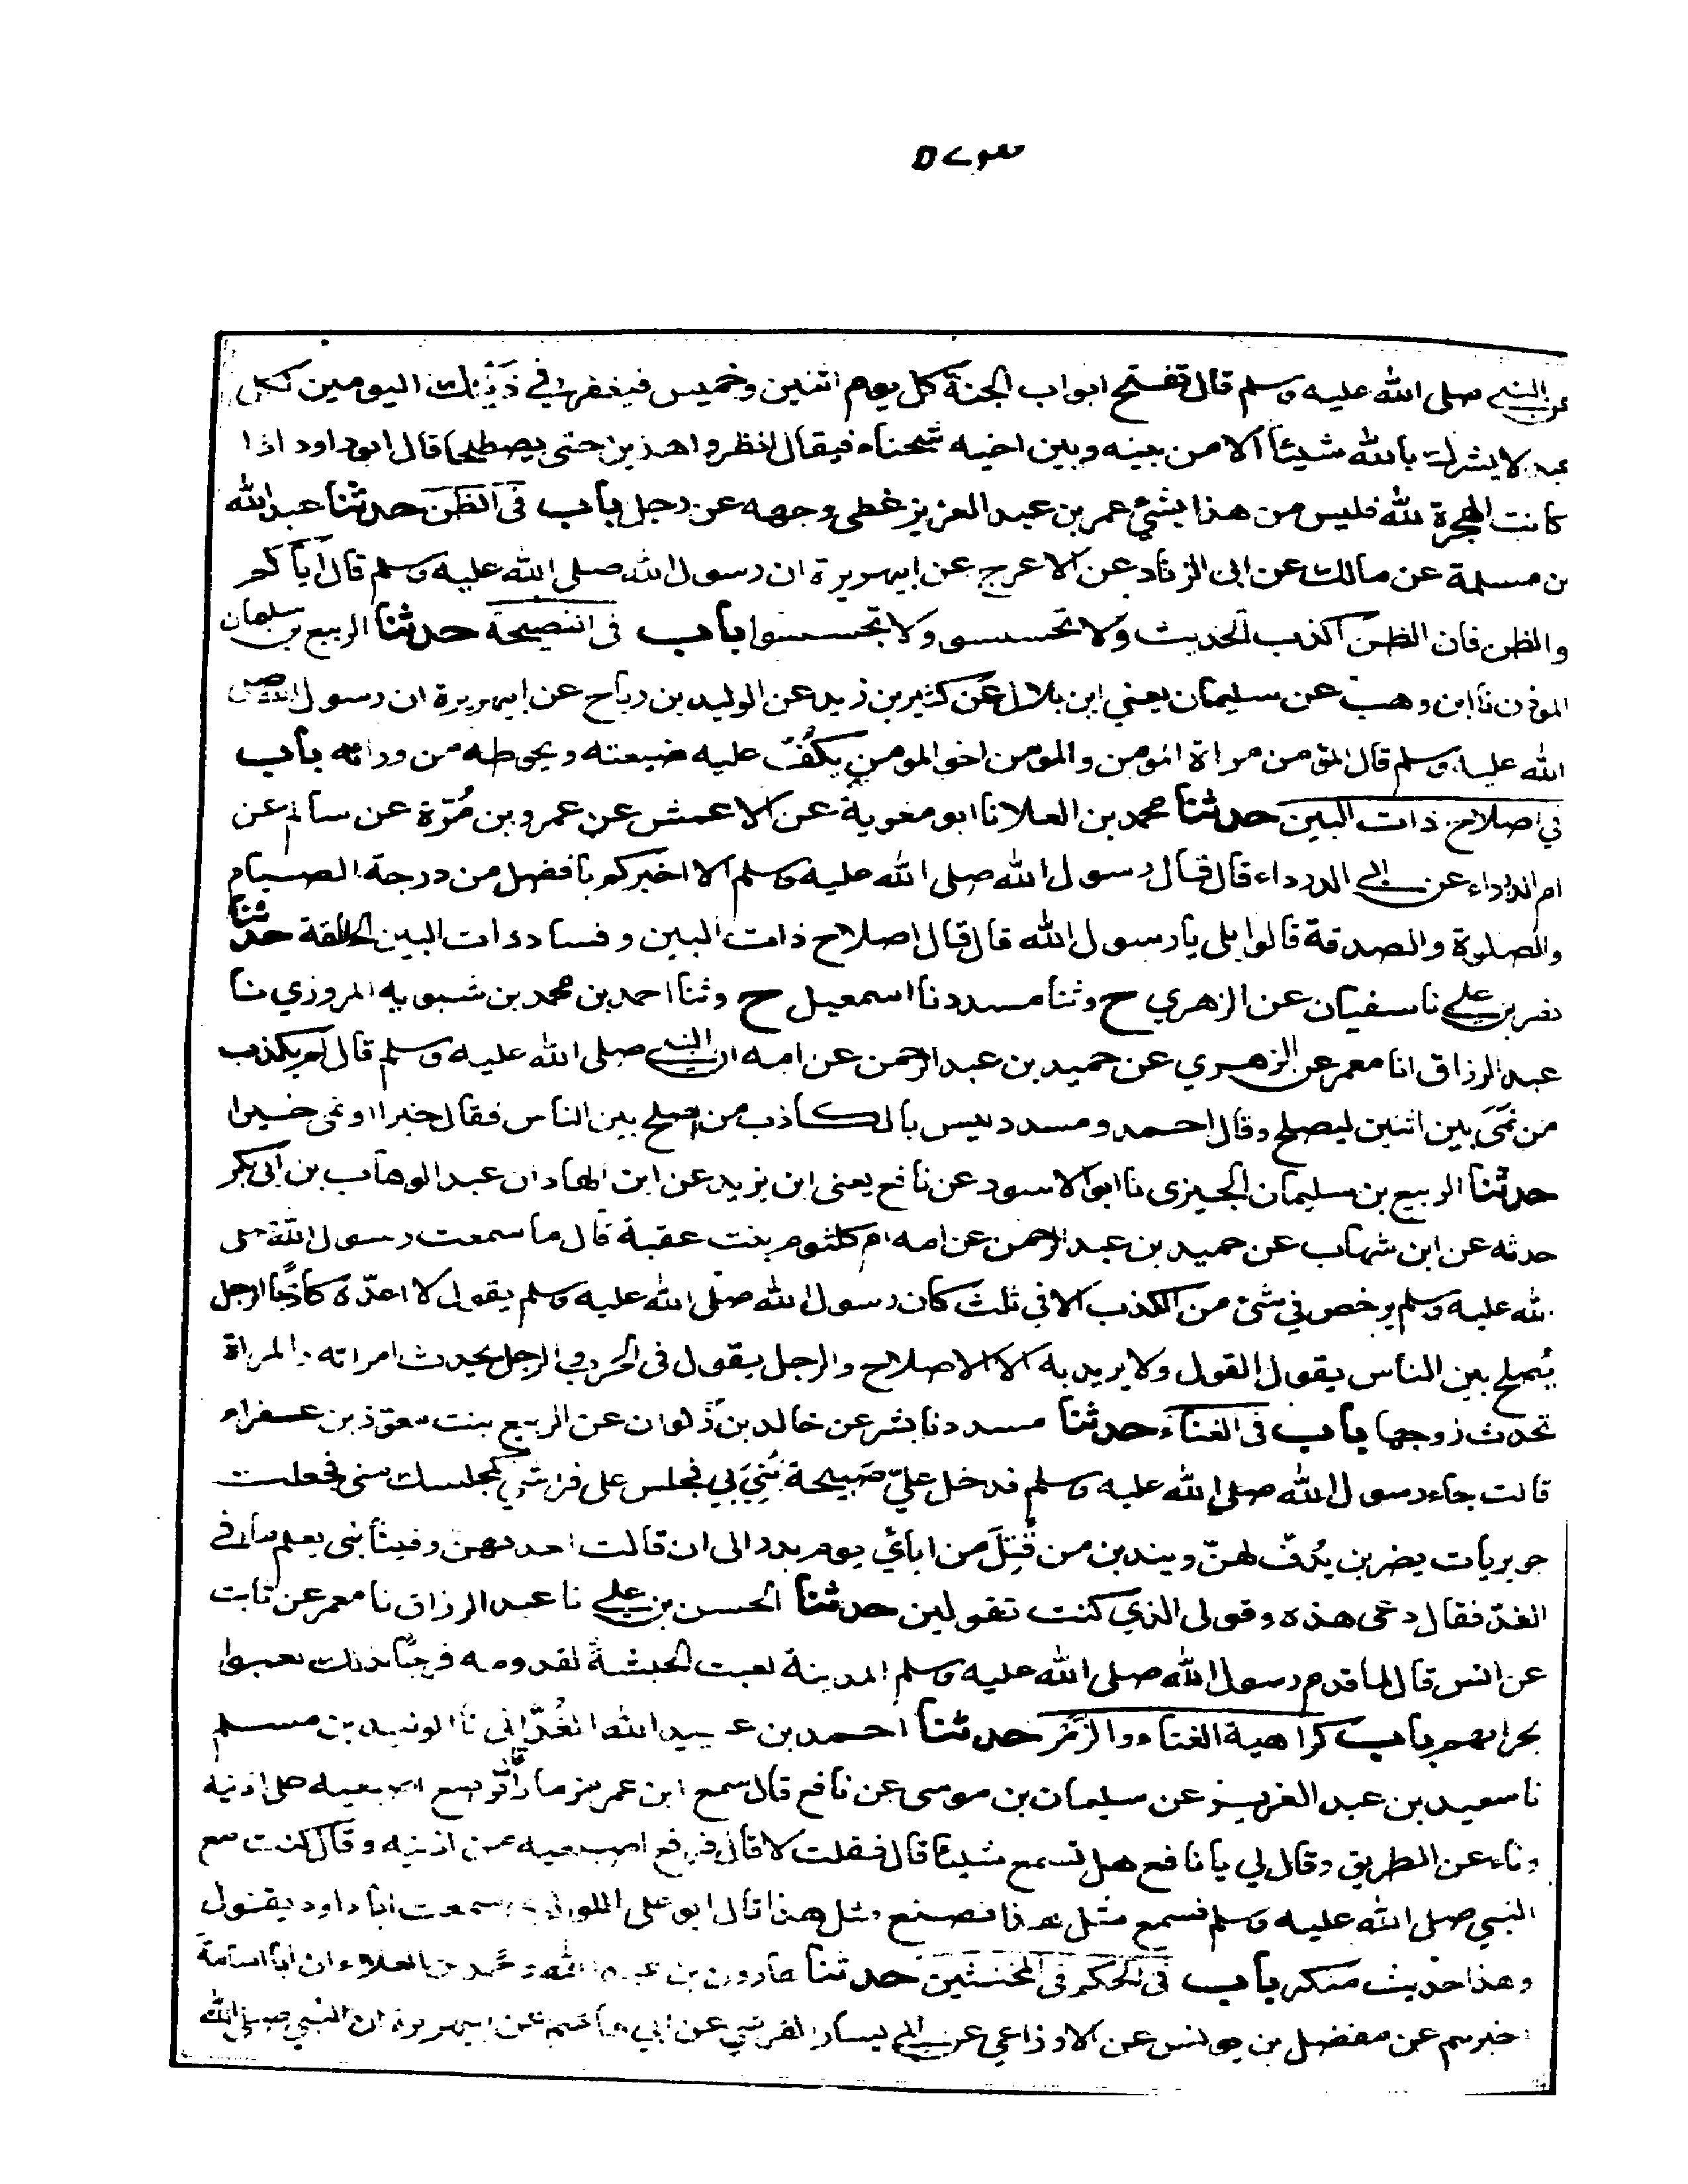 ٥٧٣
عن النبي صلى الله عليه وسلم قال تفتح ابواب الجنة كل يوم اثنين وخميس فيغفر في ذينك اليومين لكل
عبد لا يشرك بالله شيئا الا من بينه وبين اخيه شحناء فيقال انظروا هذين حتى يصطلحا قال ابو داود اذا
كانت الهجرة لله فليس من هذا بشئ عمر بن عبد العزيز غطى وجهه عن رجل باب في الظن حدثنا عبد الله
بن مسلمة عن مالك عن ابى الزناد عن الاعرج عن ابيهريرة ان رسول الله صلى الله عليه وسلم قال اياكم
والظن فان الظن اكذب الحديث ولا تحسسو ولا تجسسوا باب في النصيحة حدثنا الربيع بن سليمان
الموذن نا ابن وهب عن سليمان يعني ابن بلال عن كثير بن زيد عن الوليد بن رباح عن ابيهريرة ان رسول الله صلى
الله عليه وسلم قال المؤمن مراة المؤمن والمومن اخو المومن يكف عليه ضيعته ويحوطه من ورائه باب
في اصلاح ذات البين حدثنا محمد بن العلا نا ابو معوية عن الاعمش عن عمرو بن مُرّة عن سالم عن
ام الدرداء عن ابي الدرداء قال قال رسول الله صلى الله عليه وسلم الا اخبركم بافضل من درجة الصيام
والصلوة والصدقة قالوا بلى يا رسول الله قال قال اصلاح ذات البين وفساد ذات البين الحالقة حدثنا
نصر بن علي نا سفيان عن الزهري ح وثنا مسدد نا اسمعيل ح وثنا احمد بن محمد بن شبويه المروزي نا
عبد الرزاق انا معمر عن الزهري عن حميد بن عبد الرحمن عن امه ان النبي صلى الله عليه وسلم قال لم يكذب
من نَمَى بين اثنين ليصلح وقال احمد ومسدد ليس بالكاذب من اصلح بين الناس فقال خيرا او نمى خيرا
حدثنا الربيع بن سليمان الجيزى نا ابو الاسود عن نافع يعنى ابن يزيد عن ابن الهاد ان عبد الوهاب بن ابى بكر
حدثه عن ابن شهاب عن حميد بن عبد الرحمن عن امه ام كلثوم بنت عقبة قال ما سمعت رسول الله صلى
الله عليه وسلم يرخص في شئ من الكذب الا في ثلث كان رسول الله صلى الله عليه وسلم يقول لا اعدّه كاذبًا الرجل
يُصلح بين الناس يقول القول ولا يريد به الا الاصلاح والرجل يقول فى الحرب والرجل يحدث امراته والمراة
تحدث زوجها باب فى الغناء حدثنا مسدد نا بشر عن خالد بن ذكوان عن الربيع بنت معوّذ بن عفراء
قالت جاء رسول الله صلى الله عليه وسلم فدخل عليّ صبيحة بُنِيَ بي فجلس على فراشي كمجلسك منى فجعلت
جويريات يضربن بدُفّ لهنّ ويندبن من قُتِلَ من ابائي يوم بدر الى ان قالت احديهن وفينا نبى يعلم ما في
الغد فقال دعى هذه وقولى الذي كنت تقولين حدثنا الحسن بن علي نا عبد الرزاق نا معمر عن ثابت
عن انس قال لما قدم رسول الله صلى الله عليه وسلم المدينة لعبت الحبشة لقدومه فرحًا بذلك لعبوا
بحرابهم باب كراهية الغناء والزمر حدثنا احمد بن عبيد الله الغُدّاني نا الوليد بن مسلم
نا سعيد بن عبد العزيز عن سليمان بن موسى عن نافع قال سمع ابن عمر مزمارا قال فوضع اصبعيه على اذنيه
وناء عن الطريق وقال لي يا نافع هل تسمع شيئا قال فقلت لا قال فرفع اصبعيه من اذنيه وقال كنت مع
النبي صلى الله عليه وسلم فسمع مثل هذا فصنع مثل هذا قال ابو على اللولوي سمعت ابا داود يقول
وهذا حديث منكر باب فى الحكم فى المخنثين حدثنا هارون بن عبد الله ومحمد بن العلاء ان ابا اسامة
اخبرهم عن مفضل بن يونس عن الاوذاعي عن ابي يسار القرشي عن ابي هاشم عن ابيهريرة ان النبي صلى الله